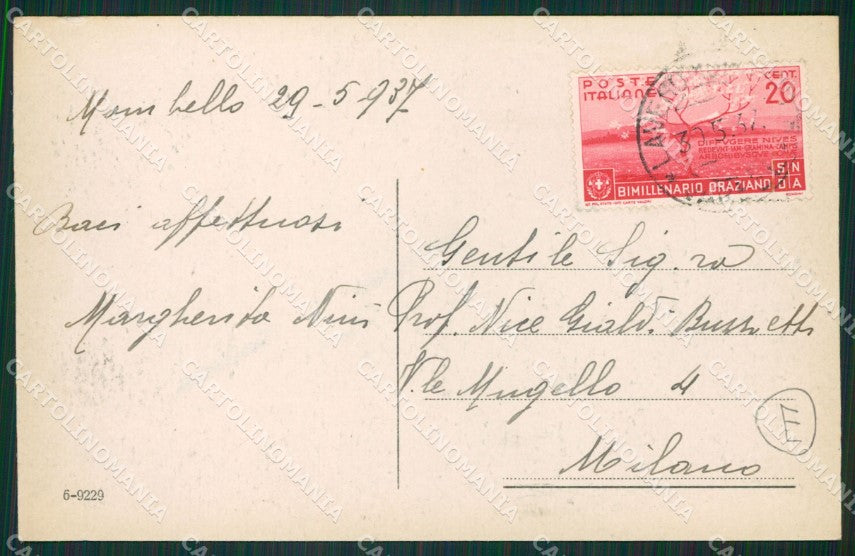 Mombello 29-5-937
Baci affettuosi
Margherita Nini
6-9229
POSTE ITALIANE
CENT. 20
DIFFUGERE NIVES
REDEUNT·IAM·GRAMINA·CAMPIS
ARBORIBUSQVE COMAE
BIMILLENARIO ORAZIANO
30.5.37
Gentile Sig.ra
Prof. Nice Gialdi Bussetti
V.le Mugello 4
Milano
CARTOLINOMANIA